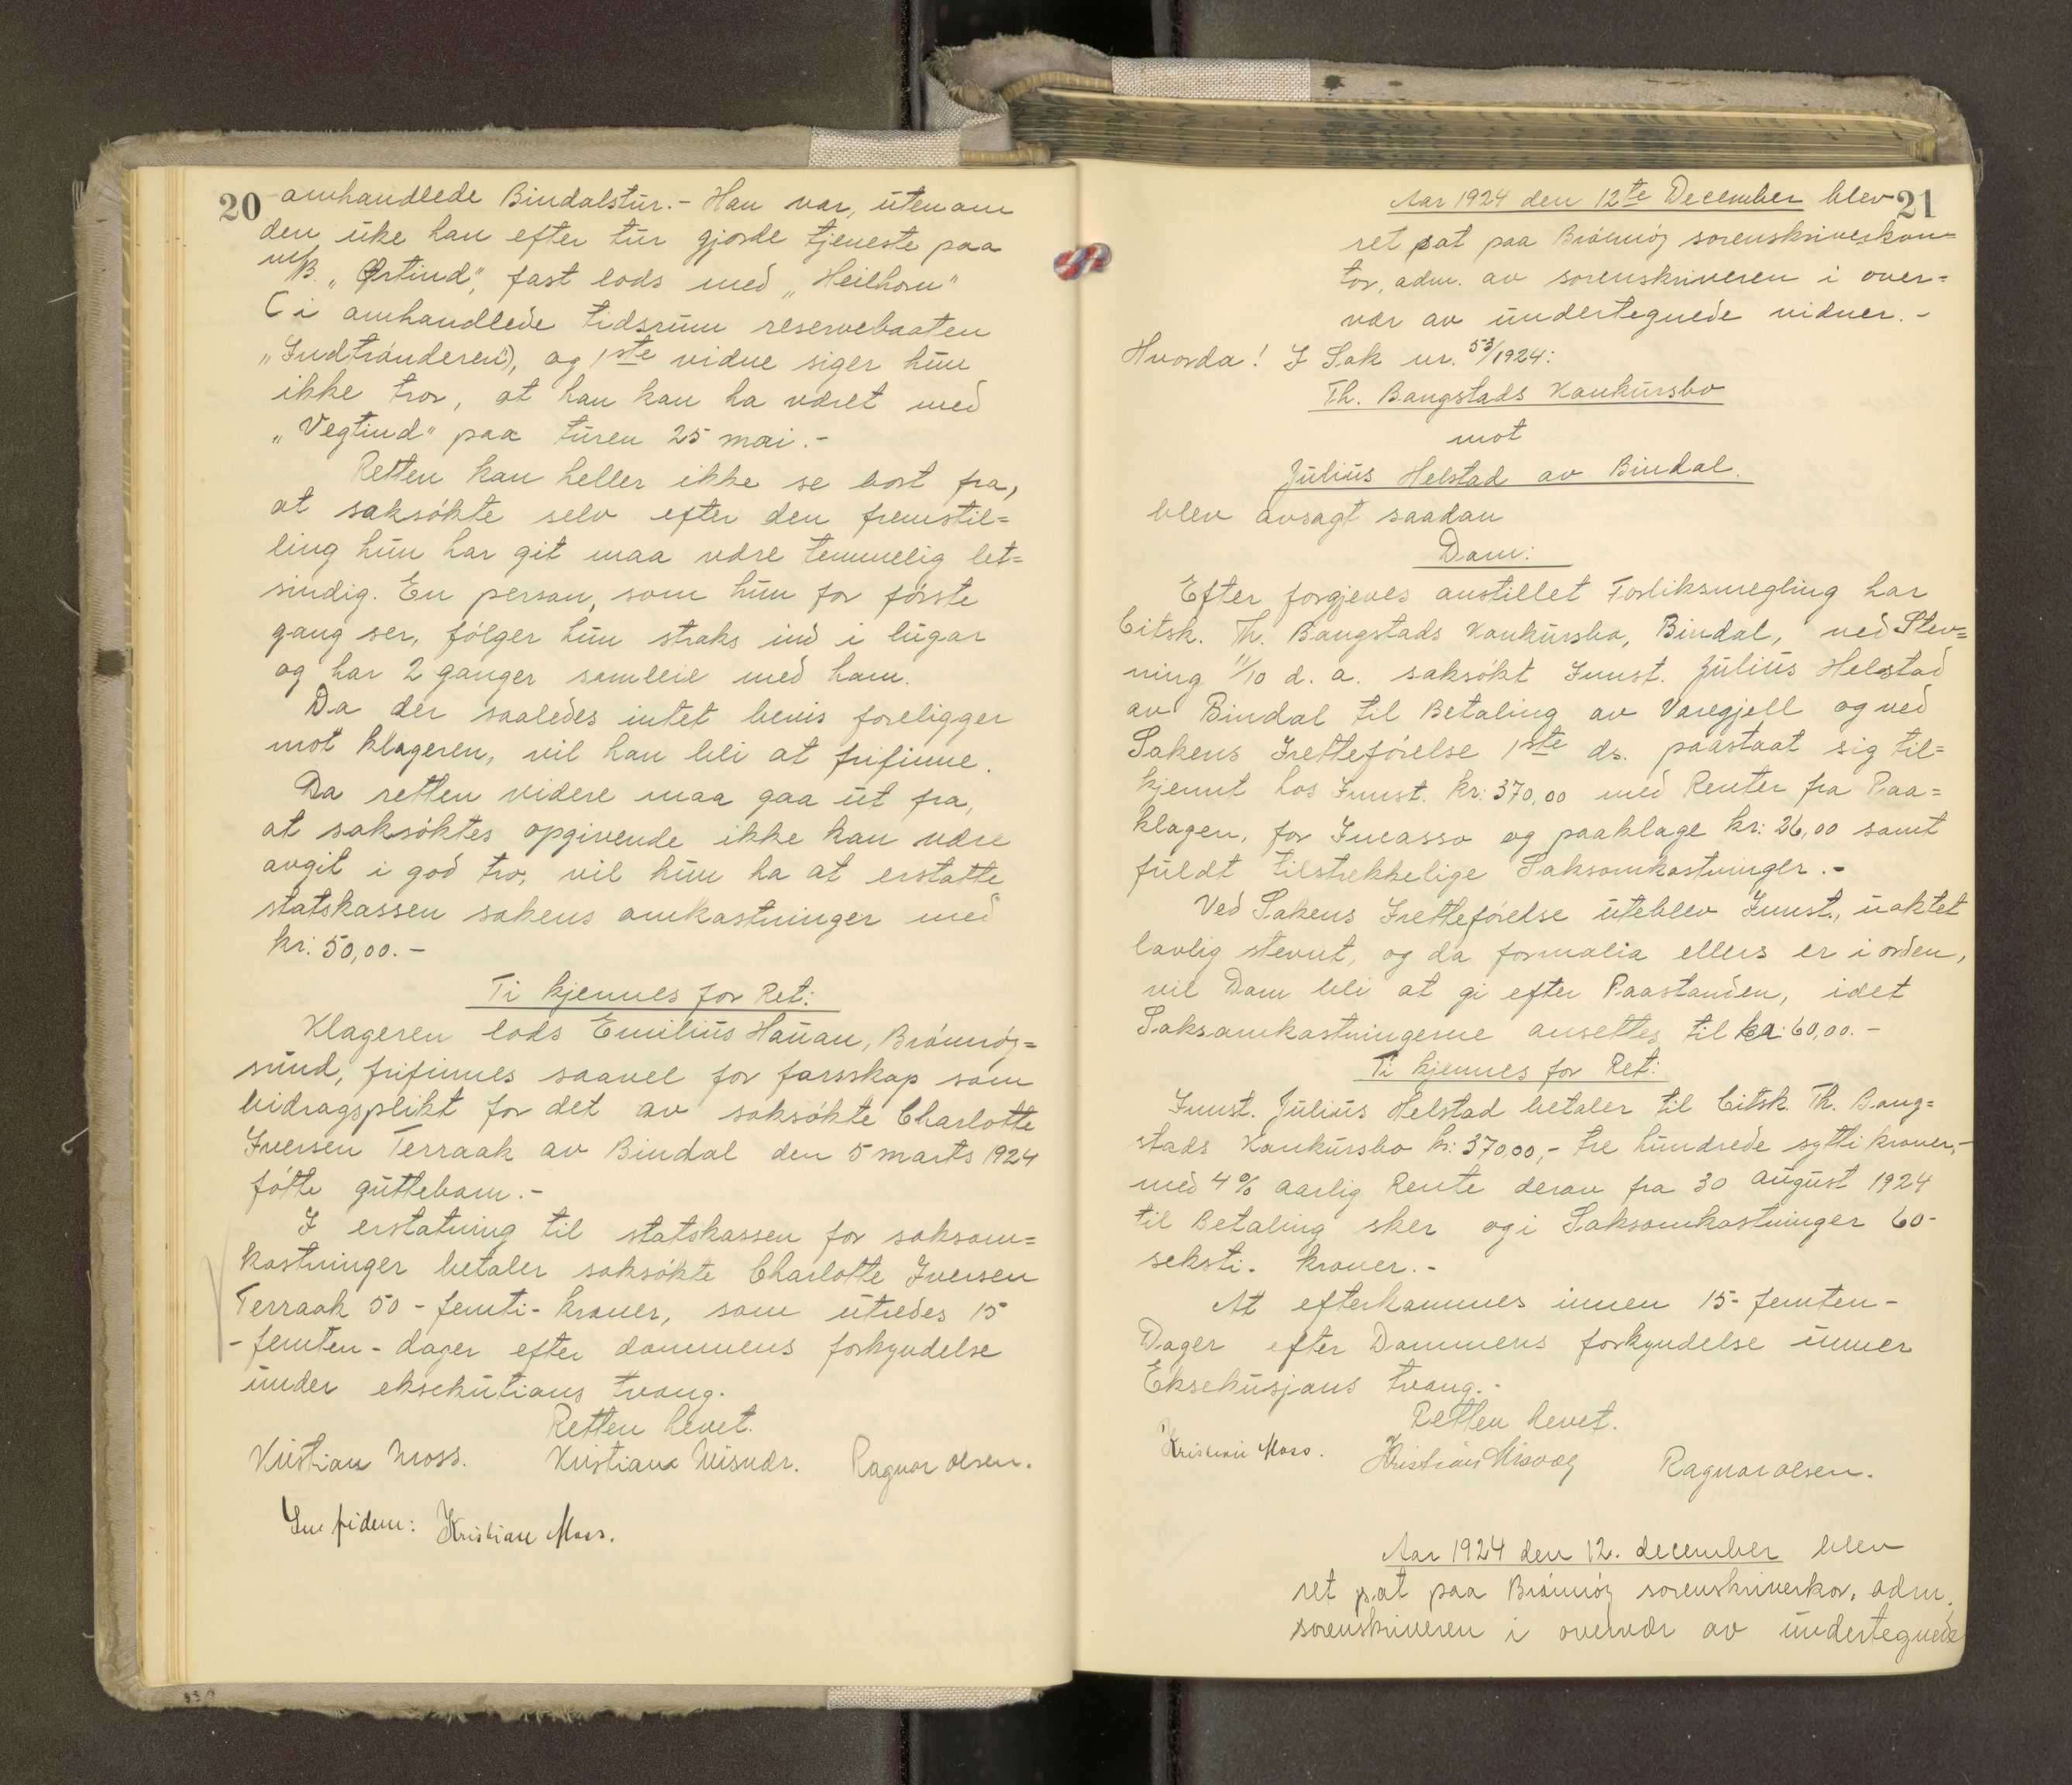 20
omhandlede Bindalstur.- Han var, utenom
den uke han efter tur gjorde tjeneste paa
m/B. „Ørtind", fast lods med „Heilhorn"
(i omhandlede tidsrum reservebaaten
„Indtrønderen"), og 1ste vidne siger hun
ikke tror, at han kan ha været med
„Vegtind" paa turen 25 mai.-
Retten kan heller ikke se bort fra,
at saksøkte selv efter den fremstil=
ling hun har git maa være temmelig let=
sindig. En person, som hun for første
gang ser, følger hun straks ind i lugar
og har 2 ganger samleie med ham.
Da der saaledes intet bevis foreligger
mot klageren, vil han bli at frifinne.
Da retten videre maa gaa ut fra,
at saksøktes opgivende ikke kan være
avgit i god tro, vil hun ha at erstatte
statskassen sakens omkostninger med
kr: 50,00.-
Ti kjennes for Ret:
Klageren lods Emilius Hauan, Brønnøy=
sund, frifinnes saavel for farsskap som
bidragsplikt for det av saksøkte Charlotte
Iversen Terraak av Bindal den 5 marts 1924
føtte guttebarn.-
I erstatning til statskassen for saksom=
kostninger betaler saksøkte Charlotte Iversen
Terraak 50 - femti - kroner, som utredes 15
- femten - dager efter dommens forkyndelse
under eksekutions tvang.
Retten hevet.
Kristian Moss. Kristian Misvær. Ragnar Olsen.
In fidem: Kristian Moss.
21
Aar 1924 den 12te December blev
ret sat paa Brønnøy sorenskriverskon=
tor, adm. av sorenskriveren i over=
vær av undertegnede vidner.-
Hvorda! I Sak nr. 53/1924:
Th. Bangstads Konkursbo
mot
Julius Helstad av Bindal.
blev avsagt saadan
Dom:
Efter forgjeves anstillet Forliksmegling har
Citsk. Th. Bangstads Konkursbo, Bindal, ved Stev=
ning 11/10 d. a. saksøkt Innst. Julius Helstad
av Bindal til Betaling av Varegjell og ved
Sakens Iretteførelse 1ste ds. paastaat sig til=
kjennt hos Innst. kr: 370,00 med Renter fra Paa=
klagen, for Incasso og paaklage kr: 26,00 samt
fuldt tilstrekkelige Saksomkostninger.-
Ved Sakens Iretteførelse uteblev Innst., uaktet
lovlig stevnt, og da formalia ellers er i orden,
vil Dom bli at gi efter Paastanden, idet
Saksomkostningerne ansettes til kr: 60,00.-
Ti kjennes for Ret:
Innst. Julius Helstad betaler til Citsk. Th. Bang=
stads Konkursbo kr: 370,00,- tre hundrede sytti kroner,-
med 4% aarlig Rente derav fra 30 august 1924
til Betaling sker og i Saksomkostninger 60-
seksti - kroner.-
At efterkommes innen 15- femten -
Dager efter Dommens forkyndelse unner
Eksekusjons tvang.-
Retten hevet.
Kristian Moss. Kristian Misvær Ragnar Olsen.
Aar 1924 den 12. december blev
ret sat paa Brønnøy sorenskriverkor. adm.
sorenskriveren i overvær av undertegnede